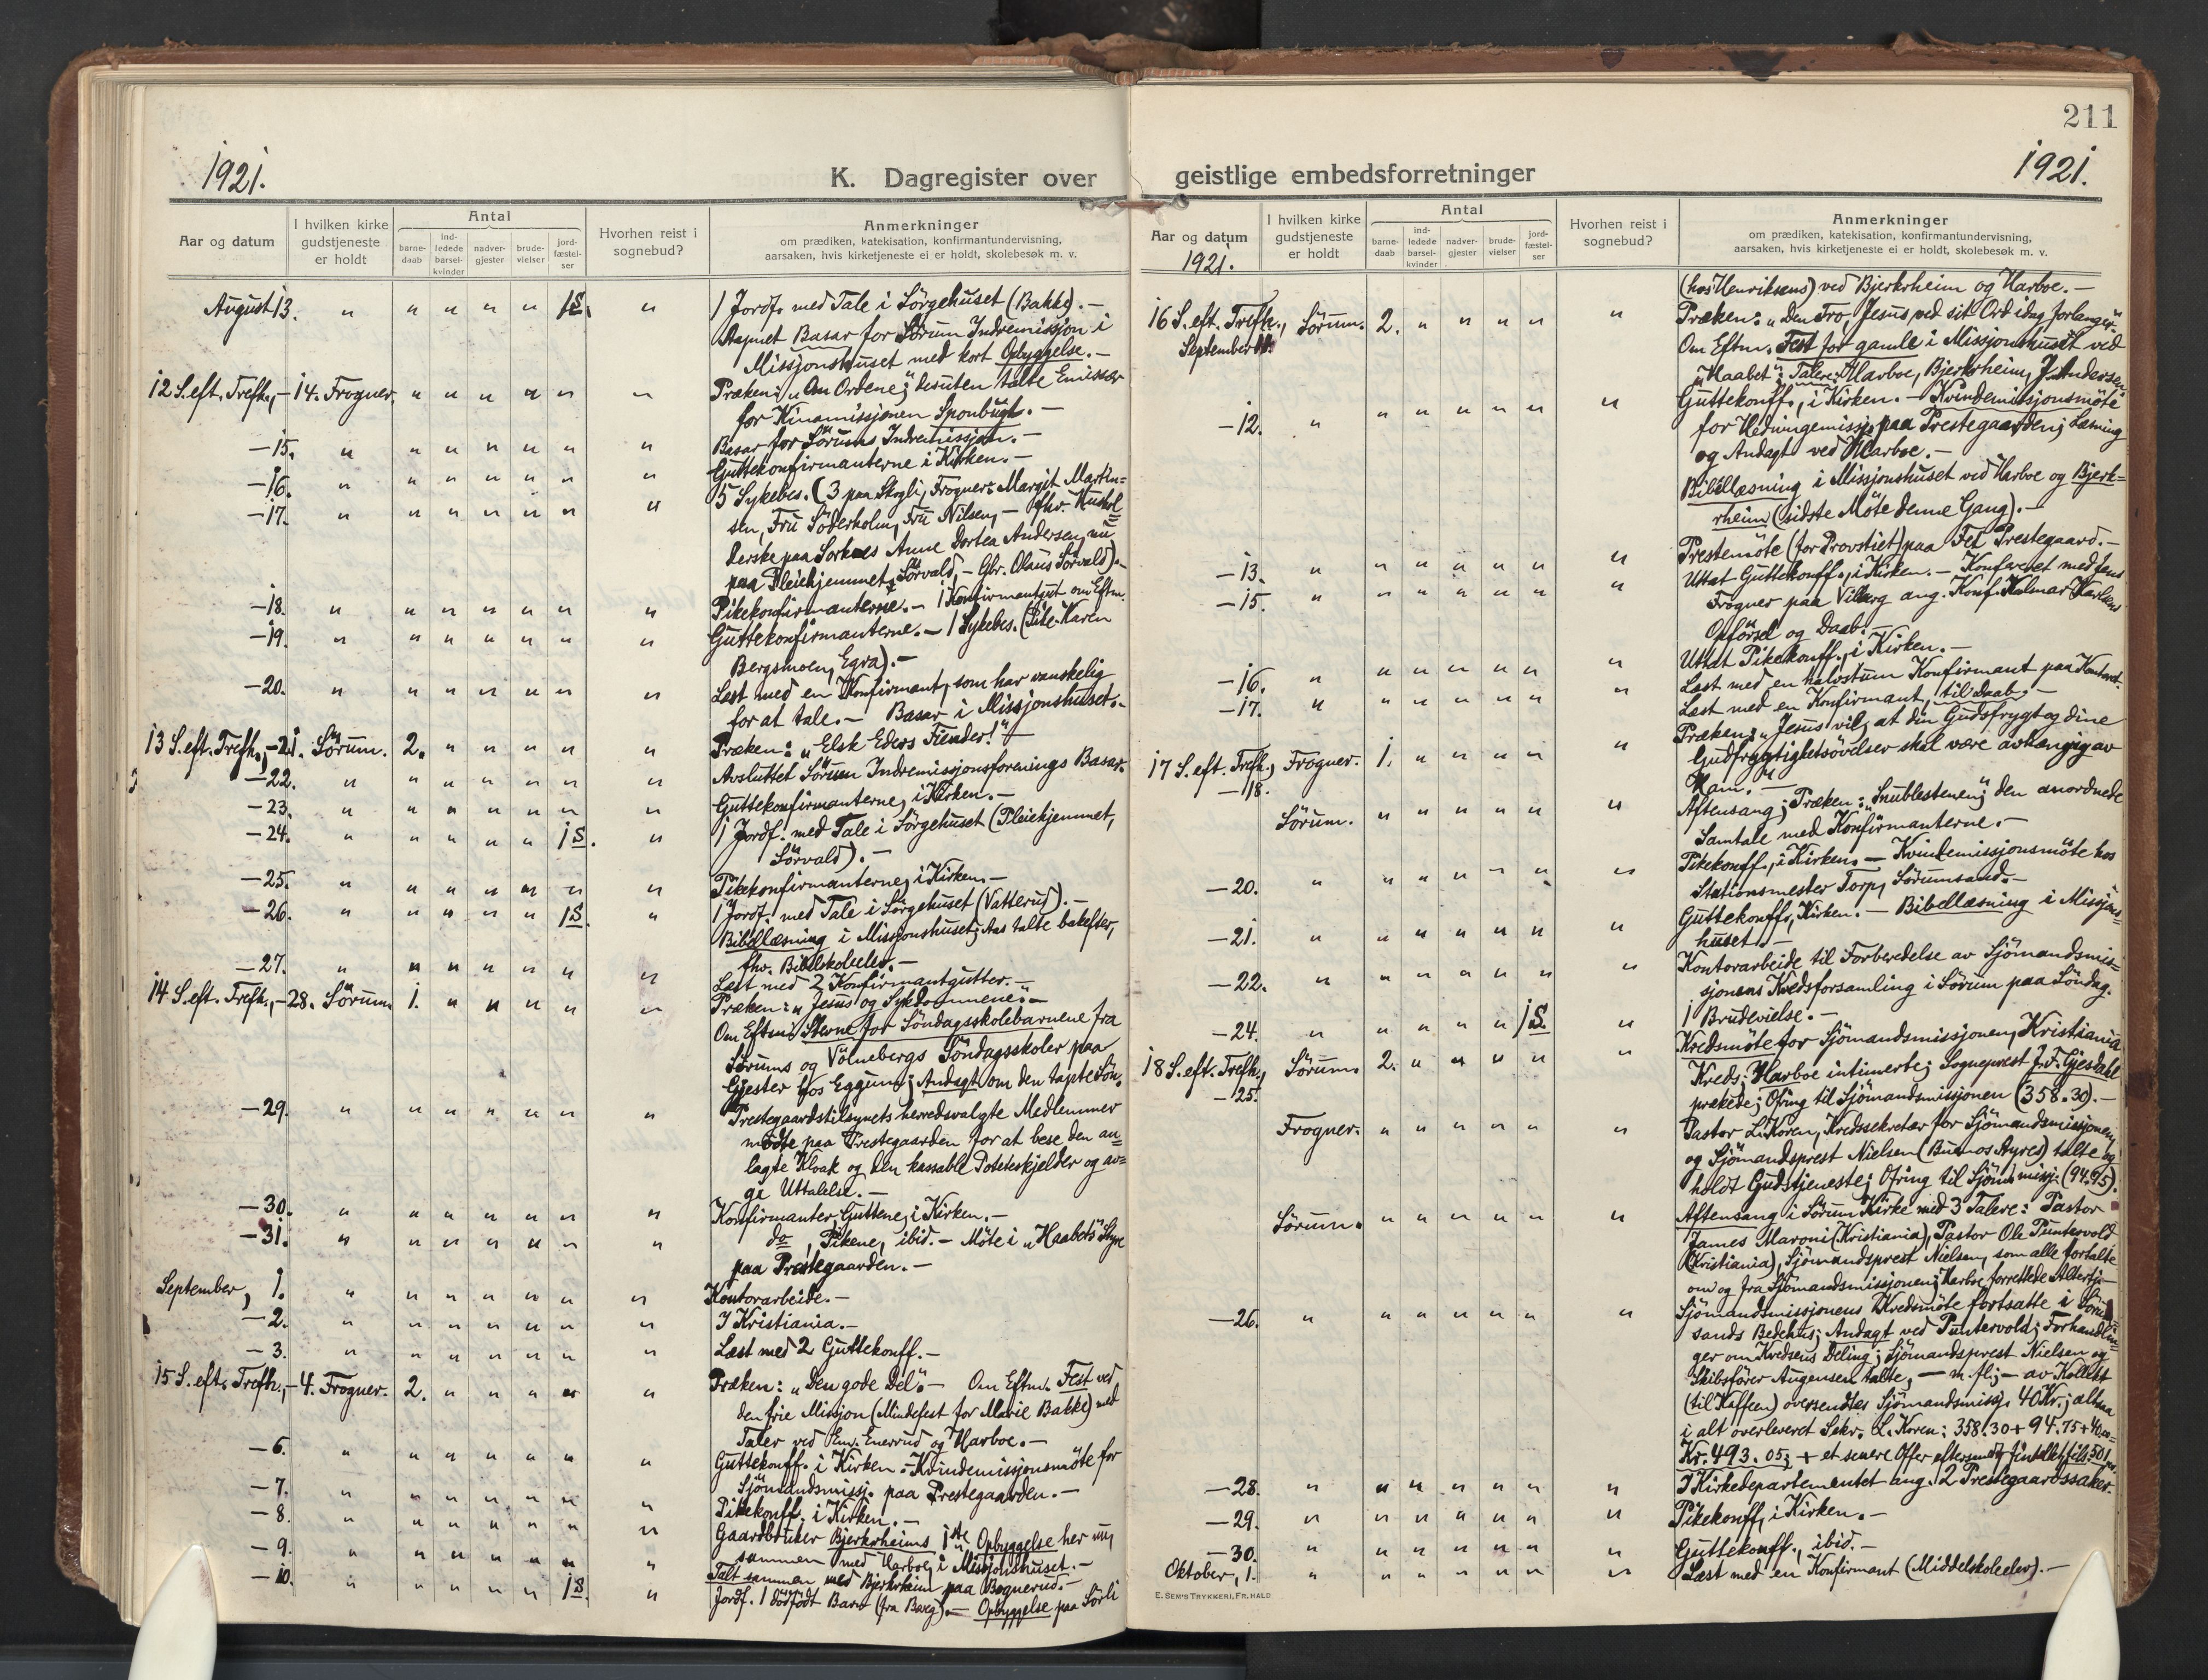 211
1921.
K. Dagregister over geistlige embedsforretninger
1921.
Aar og datum
I hvilken kirke gudstjeneste er holdt
Antal
barne-daab
ind-ledede barsel-kvinder
nadver-gjester
brude-vielser
jord-fæstel-ser
Hvorhen reist i sognebud?
Anmerkninger
om prædiken, katekisation, konfirmantundervisning,
aarsaken, hvis kirketjeneste ei er holdt, skolebesøk m. v.
August 13. " " " " " 1 S. " 1 Jordf. med Tale i Sörgehuset (Bakke). —
Aapnet Basar for Sörum Indremissjon i
Missjonshuset med kort Opbyggelse. —
12 S. eft. Trefh., — 14. Frogner. " " " " " " Præken: „Om Ordene"; desuten talte Emissær
for Kinamissjonen Sponbugh. —
— 15. " " " " " " " Basar for Sörums Indremissjon. —
— 16. " " " " " " " Guttekonfirmanterne i Kirken. —
— 17. " " " " " " " 5 Sykebes. (3 paa Skogli, Frogner: Margit Martin=
sen, Fru Söderholm, Fru Nilsen, — fhv. Hushol=
derske paa Sorknes Anne Dortea Andersen, nu
paa Pleiehjemmet, Sörvald, — Gbr. Olaus Sörvald). —
— 18. " " " " " " " Pikekonfirmanterne. — 1 Konfirmantgut om Eftm.
— 19. " " " " " " " Guttekonfirmanterne. — 1 Sykebes. (Pike Karen
Bergsmoen, Egra). —
— 20. " " " " " " " Læst med en Konfirmant, som har vanskelig
for at tale. — Basar i Missjonshuset. —
13 S. eft. Trefh., — 21. Sörum. 2. " " " " " Præken: „Elsk Eders Fiender!" —
— 22. " " " " " " " Avsluttet Sörum Indremissjonsforenings Basar.
— 23. " " " " " " " Guttekonfirmanterne, i Kirken. —
— 24. " " " " " 1 S. " 1 Jordf. med Tale i Sörgehuset (Pleiehjemmet,
Sörvald). —
— 25. " " " " " " " Pikekonfirmanterne, i Kirken. —
— 26. " " " " " 1 S. " 1 Jordf. med Tale i Sörgehuset (Vatterud). —
Bibellæsning i Missjonshuset; Aas talte bakefter,
fhv. Bibelskoleelev. —
— 27. " " " " " " " Læst med 2 Konfirmantgutter. —
14 S. eft. Trefh., — 28. Sörum. 1. " " " " " Præken: „Jesus og Sykdommene". —
Om Eftm. Stevne for Söndagsskolebarnene fra
Sörums og Völnebergs Söndagsskoler paa
Gjester hos Eggum; Andagt om den tapte Sön.
— 29. " " " " " " " Prestegaardstilsynets herredsvalgte Medlemmer
mödte paa Prestegaarden for at bese den an=
lagte Kloak og den kassable Poteteskjelder og av=
gi Uttalelse. —
— 30. " " " " " " " Konfirmanter, Guttene, i Kirken. —
— 31. " " " " " " " do, Pikene, ibid. — Möte i „Haabets" Styre
paa Prestegaarden. —
September, 1. " " " " " " " Kontorarbeide. —
— 2. " " " " " " " I Kristiania. —
— 3. " " " " " " " Læst med 2 Guttekonff. —
15 S. eft. Trefh., — 4. Frogner. 2. " " " " " Præken: „Den gode Del". — Om Eftm. Fest ved
den frie Missjon (Mindefest for Marie Bakke) med
Taler ved Em. Enerrud og Harboe. —
— 6. " " " " " " " Guttekonff. i Kirken. — Kvindemissjonsmöte for
Sjömandsmissj. paa Prestegaarden. —
— 7. " " " " " " " Pikekonff. i Kirken. —
— 8. " " " " " " " Gaardbruker Bjerkrheims 1ste Opbyggelse her nu,
sammen med Harboe, i Missjonshuset. —
— 9. " " " " " " " Talt sammen med Bjerkrheim paa Bognerud. —
— 10. " " " " " 1 S. " Jordf. 1 dödfödt Barn (fra Berg). — Opbyggelse paa Sörli
Aar og datum
1921.
I hvilken kirke gudstjeneste er holdt
Antal
barne-daab
ind-ledede barsel-kvinder
nadver-gjester
brude-vielser
jord-fæstel-ser
Hvorhen reist i sognebud?
Anmerkninger
om prædiken, katekisation, konfirmantundervisning,
aarsaken, hvis kirketjeneste ei er holdt, skolebesøk m. v.
(hos Henriksens) ved Bjerkrheim og Harboe. —
16 S. eft. Trefh., Sörum. 2. " " " " " Præken: „Den Tro, Jesus ved sit Ord idag forlanger."
September 11. Om Eftm. Fest for gamle i Missjonshuset ved
„Haabet"; Talere: Harboe, Bjerkrheim, J. Andersen.
— 12. " " " " " " " Guttekonff., i Kirken. — Kvindemissjonsmöte
for Hedningemissj. paa Prestegaarden; Læsning
og Andagt ved Harboe. —
Bibellæsning i Missjonshuset ved Harboe og Bjerk=
rheim (sidste Möte denne Gang). —
— 13. " " " " " " " Prestemöte (for Provstiet) paa Fet Prestegaard. —
— 15. " " " " " " " Uttat Guttekonff., i Kirken. — Konfereret med Jens
Frogner paa Viberg ang. Konf. Halmar Karlsens
Opförsel og Daab. —
— 16. " " " " " " " Uttat Pikekonff., i Kirken. —
Læst med en halvstum Konfirmant paa Kontoret.
— 17. " " " " " " " Læst med en Konfirmant, til Daab. —
17 S. eft. Trefh., Frogner. 1. " " " " " Præken: „Jesus vil, at din Gudsfrygt og dine
— 18. Gudfrygtighetsövelser skal være avhængig av
Ham." —
Sörum. " " " " " " Aftensang; Præken: „Snublestenen"; den anordnede
Samtale med Konfirmanterne. —
— 20. " " " " " " " Pikekonff., i Kirken. — Kvindemissjonsmöte hos
Stationsmester Torp, Sörumsand. —
— 21. " " " " " " " Guttekonff., Kirken. — Bibellæsning i Missjons=
huset. —
— 22. " " " " " " " Kontorarbeide til Forberedelse av Sjömandsmis=
sjonens Kredsforsamling i Sörum paa Söndag.
— 24. " " " " " 1 S. " 1 Brudevielse. —
18 S. eft. Trefh., Sörum. 2. " " " " " Kredsmöte for Sjömandsmissjonen, Kristiania
— 25. Kreds; Harboe intimerte; Sogneprest J. F. Gjesdahl
prækede; Ofring til Sjömandsmissjonen (358.30). —
Frogner. " " " " " " Pastor L. Koren, Kredssekretær for Sjömandsmissjonen,
og Sjömandsprest Nielsen (Buenos Ayres) talte og
holdt Gudstjeneste; Ofring til Sjöm.missj. (94.75).
Sörum. " " " " " " Aftensang i Sörum Kirke med 3 Talere: Pastor
James Maroni (Kristiania), Pastor Ole Puntervold
(Kristiania), Sjömandsprest Nielsen, som alle fortalte
om og fra Sjömandsmissjonen; Harboe forrettede Altertj. —
— 26. " " " " " " " Sjömandsmissjonens Kredsmöte fortsatte i Sörum=
sands Bedehus; Andagt ved Puntervold; Forhandlin=
ger om Kredsens Deling; Sjömandsprest Nielsen og
Skibsförer Augensen talte, — m. fl.; — av Kollekt
(til Kaffeen) oversendtes Sjömandsmissj. 40 Kr.; altsaa
i alt overleveret Sekr. L. Koren: 358.30 + 94.75 + 40,00 =
Kr. 493.05; + et senere Offer
— 28. " " " " " " " I Kirkedepartementet ang. 2 Prestegaardssaker.
— 29. " " " " " " " Pikekonff., i Kirken. —
— 30. " " " " " " " Guttekonff., ibid. —
Oktober, 1. " " " " " " " Læst med en Konfirmant (Middelskoleelev). —
E. SEM'S TRYKKERI, FR. HALD